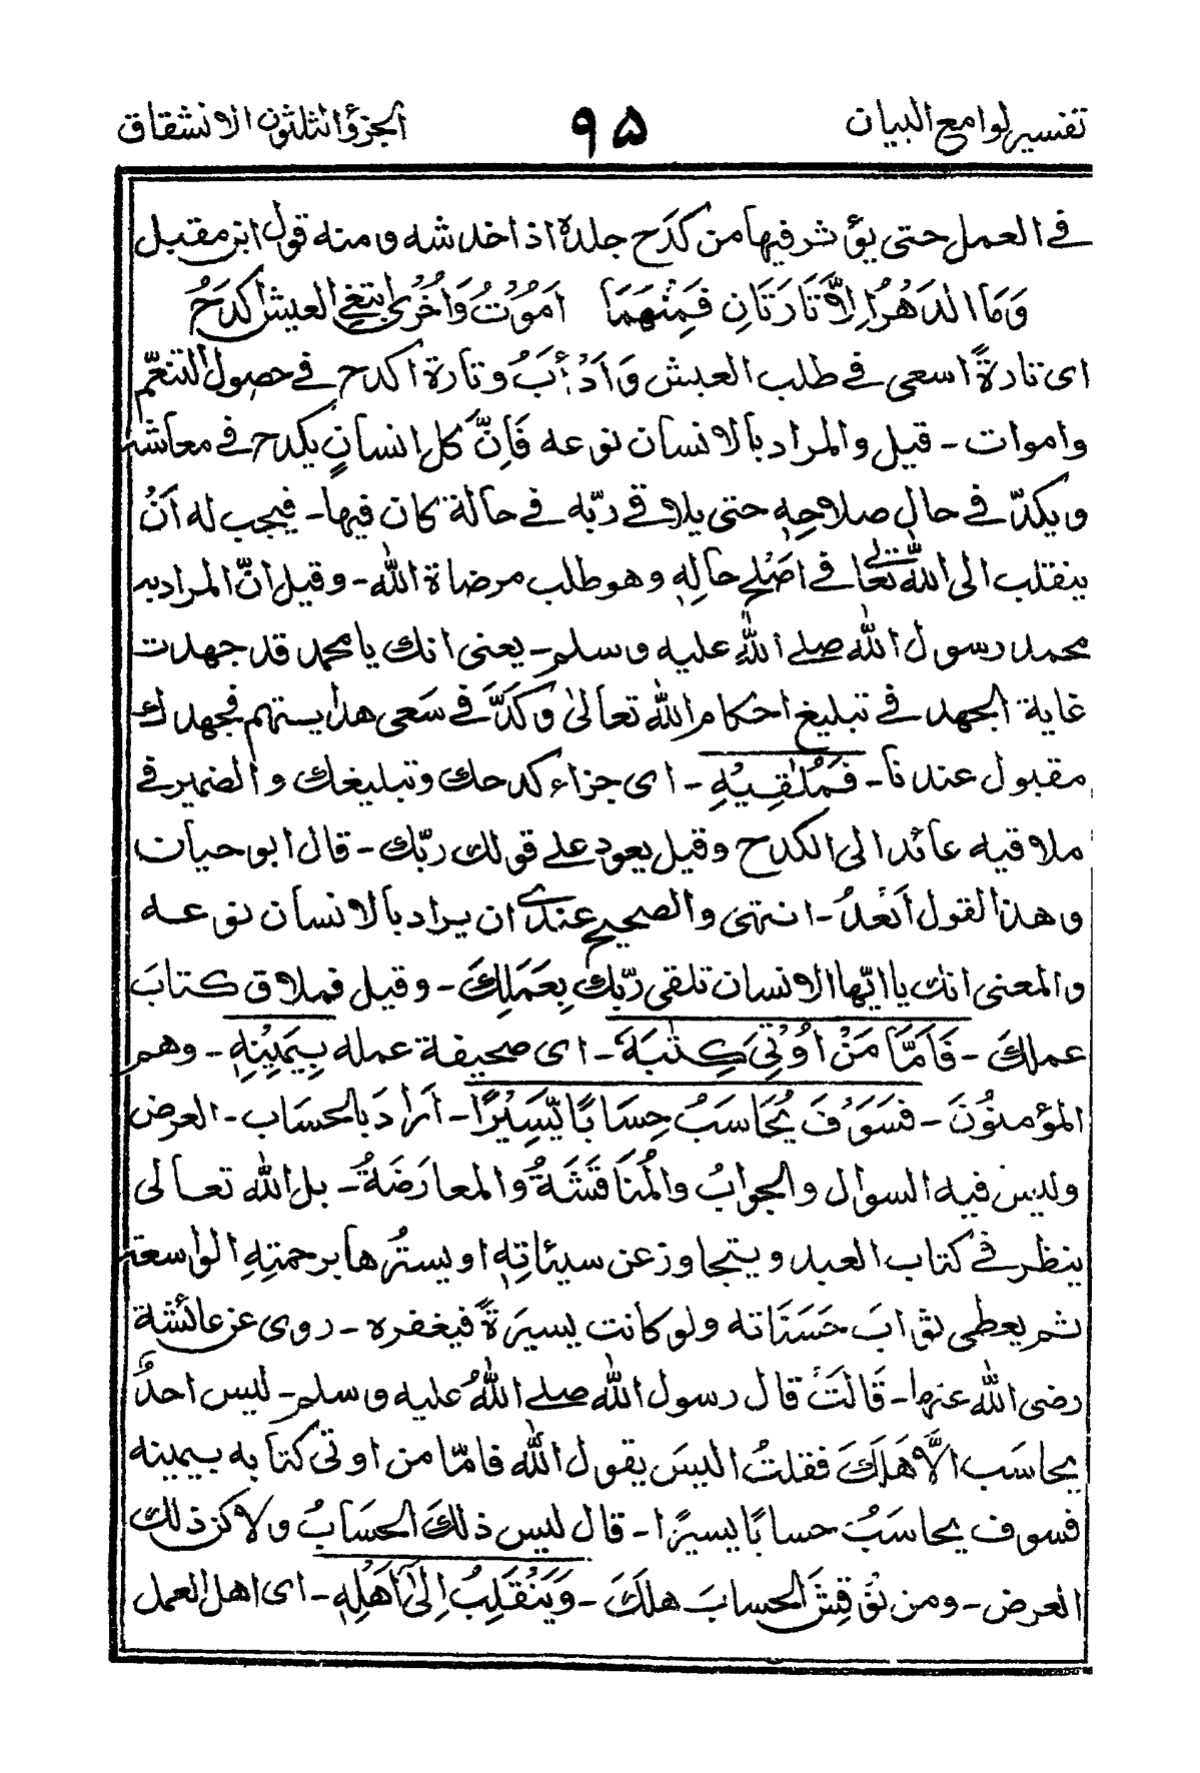 تفسير لوامع البيان ٩٥ الجزؤ الثلثون الانشقاق
فى العمل حتى يؤثر فيها من كدَح جلدهٗ اذا خدشه ومنه قول ابن مقبل
وَمَا الدَهْرُ اِلاَّ تَارَتَانِ فَمِنْهُمَا اَمُوْتُ وَاُخْرٰى ابتغي العيش اكدَحُ
اى تارةً اسعى فى طلب العيش وَادْأَبُ وتارة اكدح فى حصول التنعّم
واموات - قيل والمراد بالانسان نوعه فَاِنَّ كل اِنسانٍ يكدح فى معاشه
ويكدّ فى حال صلاحِهٖ حتى يلاقى ربّه فى حالة كان فيها - فيجب له اَنْ
ينقلب الى اللّٰه تعالىٰ فى اصْلح حالِهٖ وهو طلب مرضاة اللّٰه - وقيل انّ المراد به
محمد رسول اللّٰه صلے اللّٰهُ عليه وسلم - يعنى انك يا محمد قد جهدت
غاية الجهد فى تبليغ احكام اللّٰه تعالىٰ وَكَدَّ فى سَعى هذا يستهم فجهدك
مقبول عندنا - فَمُلٰقِيْهِ - اى جزاء كدحك وتبليغك والضمير فى
ملاقيه عائد الى الكدح وقيل يعود على قولك ربّك - قال ابو حيان
وهذا القول اَبْعدُ - انتهى والصحيح عندى ان يراد بالانسان نوعه
والمعنى انك يا ايّها الانسان تلقى ربّك بِعَمَلِكَ - وقيل فملاق كتابَ
عملكَ - فَاَمَّا مَنْ اُوْتِىَ كِتٰبَهٗ - اى صحيفة عمله بِيَمِيْنِهٖ - وهم
المؤمنُوْنَ - فَسَوْفَ يُحَاسَبُ حِسَابًا يَّسِيْرًا - اَرادَ بالحسَاب - العرض
وليس فيه السوال والجوابُ والمُنَاقَشَةُ والمعارَضَةُ - بل اللّٰه تعالى
ينظر فى كتاب العبد ويتجاوز عن سيئاتِهٖ او يسترُها برحمتِهِ الواسعة
ثم يعطى ثوابَ حَسَنَاته ولو كانت يسيرَةً فيغفره - روى عن عائشة
رضى اللّٰه عنها - قَالَتْ قال رسول اللّٰه صلے اللّٰهُ عليه وسلم - ليس احدٌ
يحاسَب الاَّ هَلَكَ فقلتُ اليسَ يقول اللّٰه فامّا من اوتى كتابه بيمينه
فسوف يحاسَبُ حسابًا يسيرًا - قال ليس ذلكَ الحسَابُ ولاكن ذلك
العرض - ومن نوْقِشَ الحسابَ هلَكَ - وَيَنْقَلِبُ اِلىٰٓ اَهْلِهٖ - اى اهل العمل